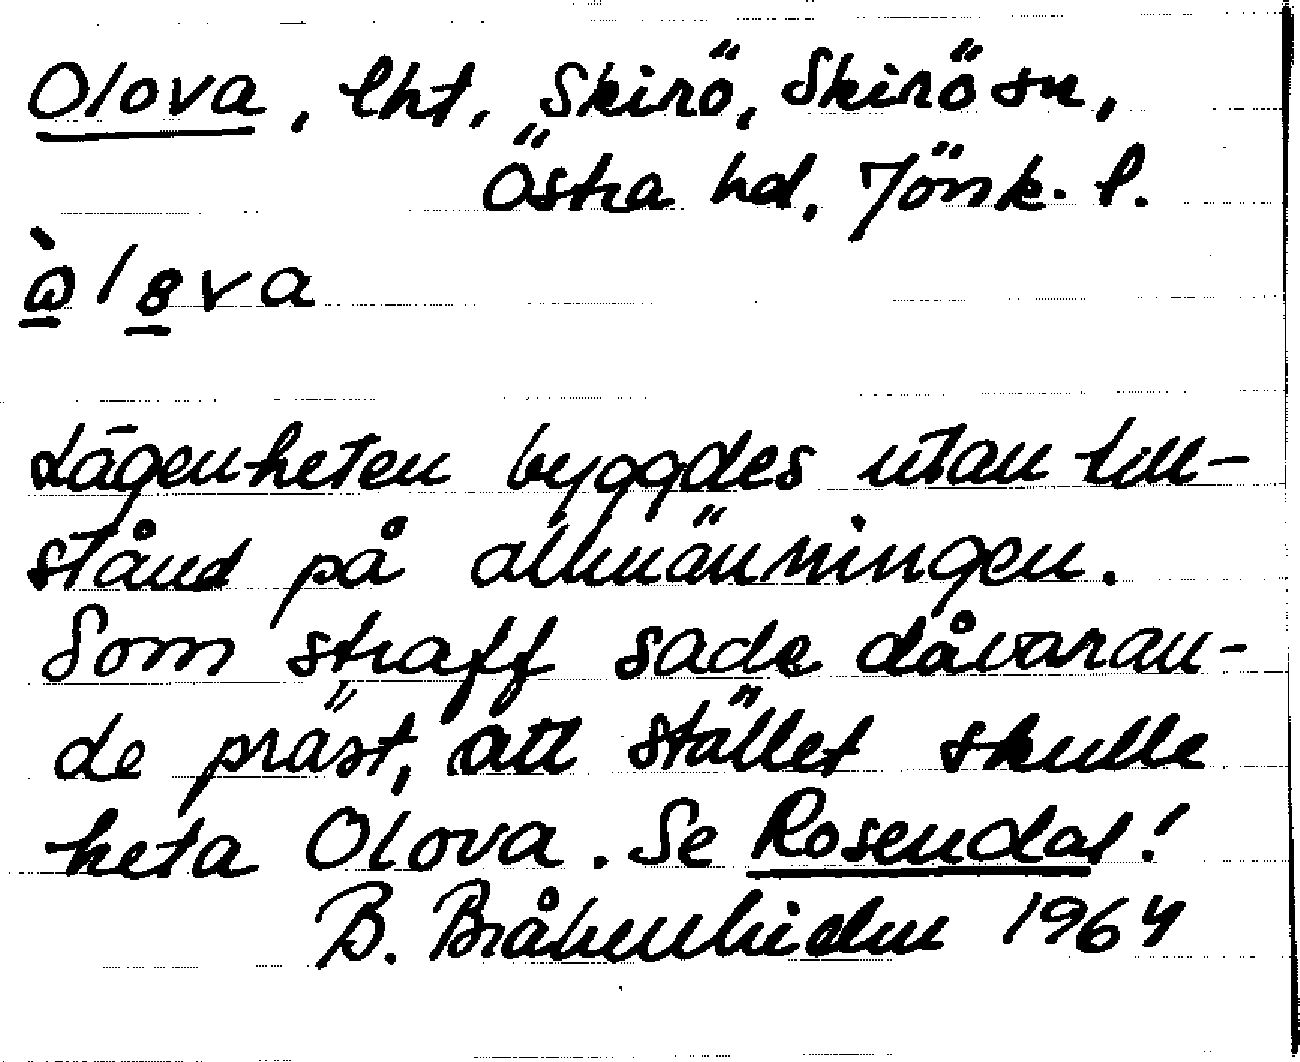 Olova, lht, Skirö, Skirö sn,
Östra hd, Jönk. l.
Lägenheten byggdes utan till-
stånd på allmänningen.
Som straff sade dåvaran-
de präst, att stället skulle
heta Olova. Se Rosendal!
B. 1964